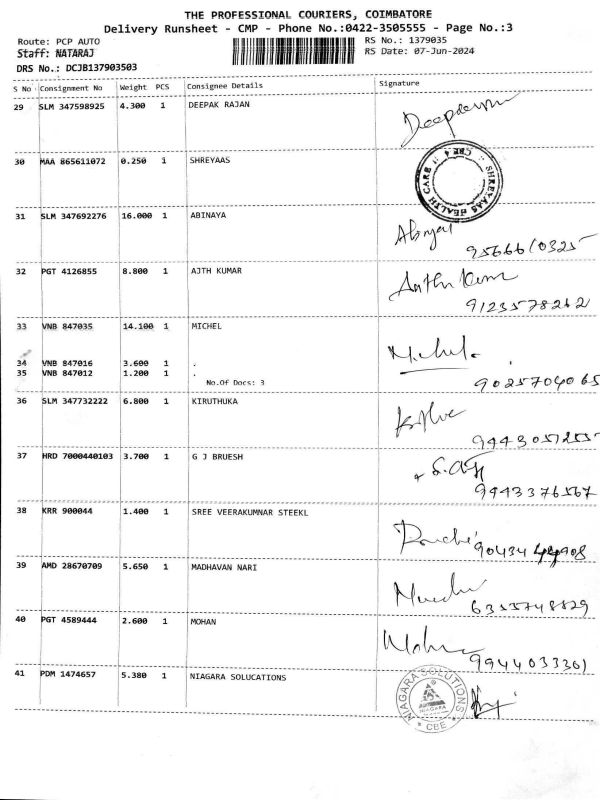 THE PROFESSIONAL COURIERS, COIMBATORE
Delivery Runsheet - CMP - Phone No.:0422-3505555 - Page No.:3
Route: PCP AUTO
RS No.: 1379035
Staff: NATARAJ
RS Date: 07-Jun-2024
DRS No.: DCJB137903503
S No Consignment No Weight PCS Consignee Details Signature
29 SLM 347598925 4.300 1 DEEPAK RAJAN
30 MAA 865611072 0.250 1 SHREYAAS
SHREYAAS HEALTH CARE CBE 4
31 SLM 347692276 16.000 1 ABINAYA
9566610325
32 PGT 4126855 8.800 1 AJTH KUMAR
9123578262
33 VNB 847035 14.100 1 MICHEL
Michel.
34 VNB 847016 3.600 1 .
35 VNB 847012 1.200 1 .
No.Of Docs: 3
9025704065
36 SLM 347732222 6.800 1 KIRUTHUKA
9443057255
37 HRD 7000440103 3.700 1 G J BRUESH
9943376567
38 KRR 900044 1.400 1 SREE VEERAKUMNAR STEEKL
39 AMD 28670709 5.650 1 MADHAVAN NARI
6355748829
40 PGT 4589444 2.600 1 MOHAN
Mohan
9944033301
41 PDM 1474657 5.380 1 NIAGARA SOLUCATIONS
NIAGARA SOLUTIONS
NIAGARA
CBE